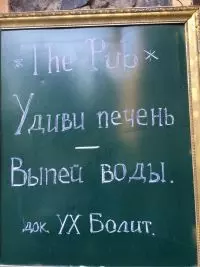 * The Pub *
Удиви печень
—
Выпей воды.
док. УХ Болит.